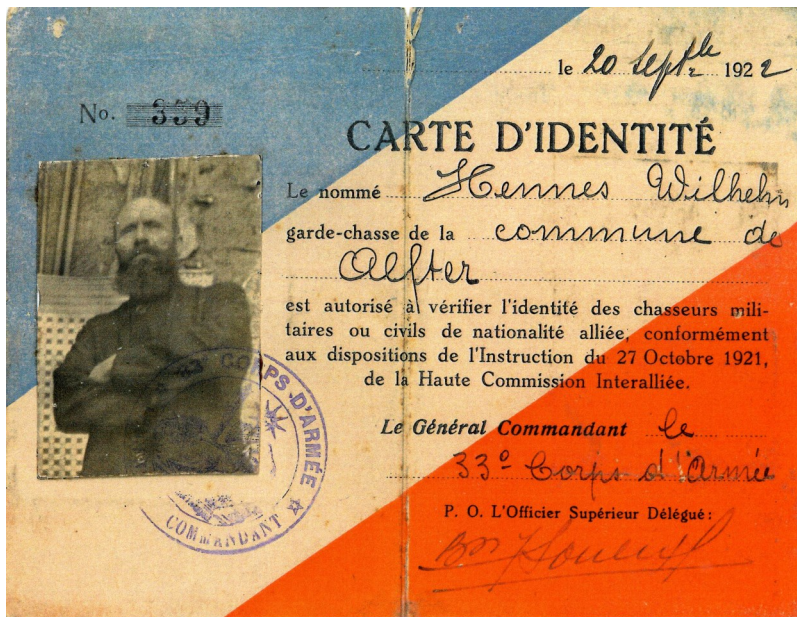 le 20 Septbre 1922
No. 339
CARTE D'IDENTITÉ
Le nommé Hennes Wilhelm
garde-chasse de la commune de
Alfter
est autorisé à vérifier l'identité des chasseurs mili-
taires ou civils de nationalité alliée, conformément
aux dispositions de l'Instruction du 27 Octobre 1921,
de la Haute Commission Interalliée.
Le Général Commandant le
33e Corps d'Armée
P. O. L'Officier Supérieur Délégué :
CORPS D'ARMÉE
COMMANDANT